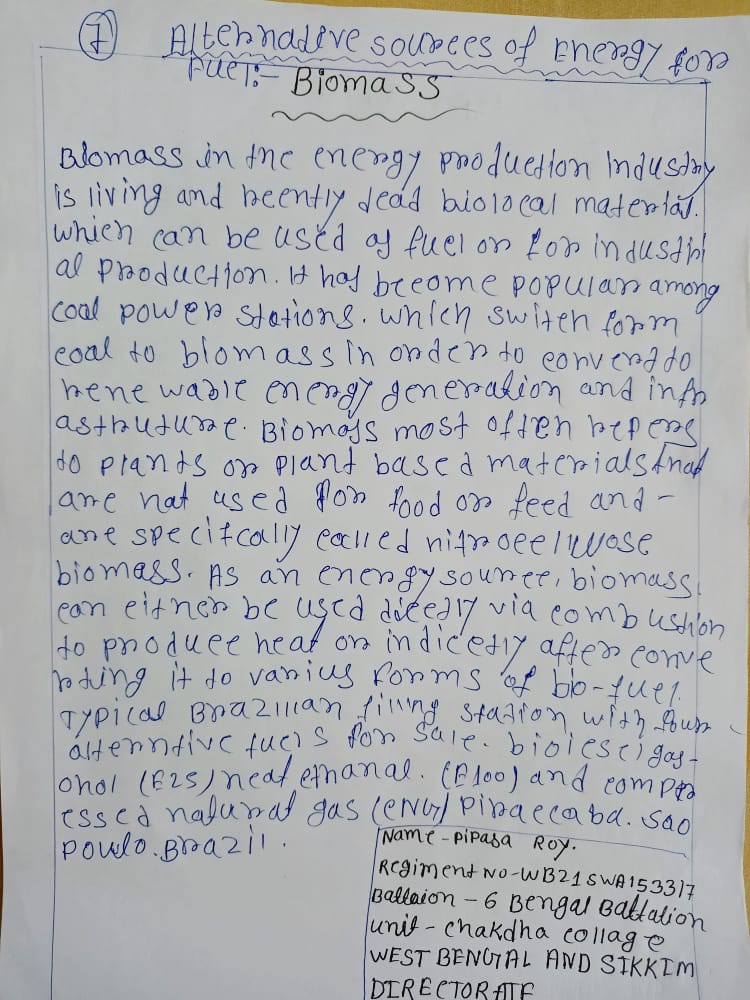 7 Alternative sources of Energy for
FUEL:- Biomass
Biomass in the energy production Industry
is living and recently dead biolocal material.
which can be used of fuel or for industri
al production. It has become popular among
coal power stations. which switch form
coal to biomass in order to convert to
rene wable energy generation and infr
astruture. Biomass most often refers
to plants or plant based materials that
are not used for food or feed and -
are specifcally called nitrocellulose
biomass. As an energy source, biomass
can either be used dicectly via combustion
to produce heat or indicetly after conve
rting it to varius forms of bio-fuel.
Typical Brazilian filling station with four
alterntive fuels for sale. biolesel gas-
ohol (E25) neat ethanal. (E100) and compr
essed natural gas (CNG) Piraccaba. sao
Powlo. Brazil.
Name - Pipasa Roy.
Regiment No - WB21SWA153317
Battaion - 6 Bengal Battalion
unit - chakdha collage
WEST BENGAL AND SIKKIM
DIRECTORATE